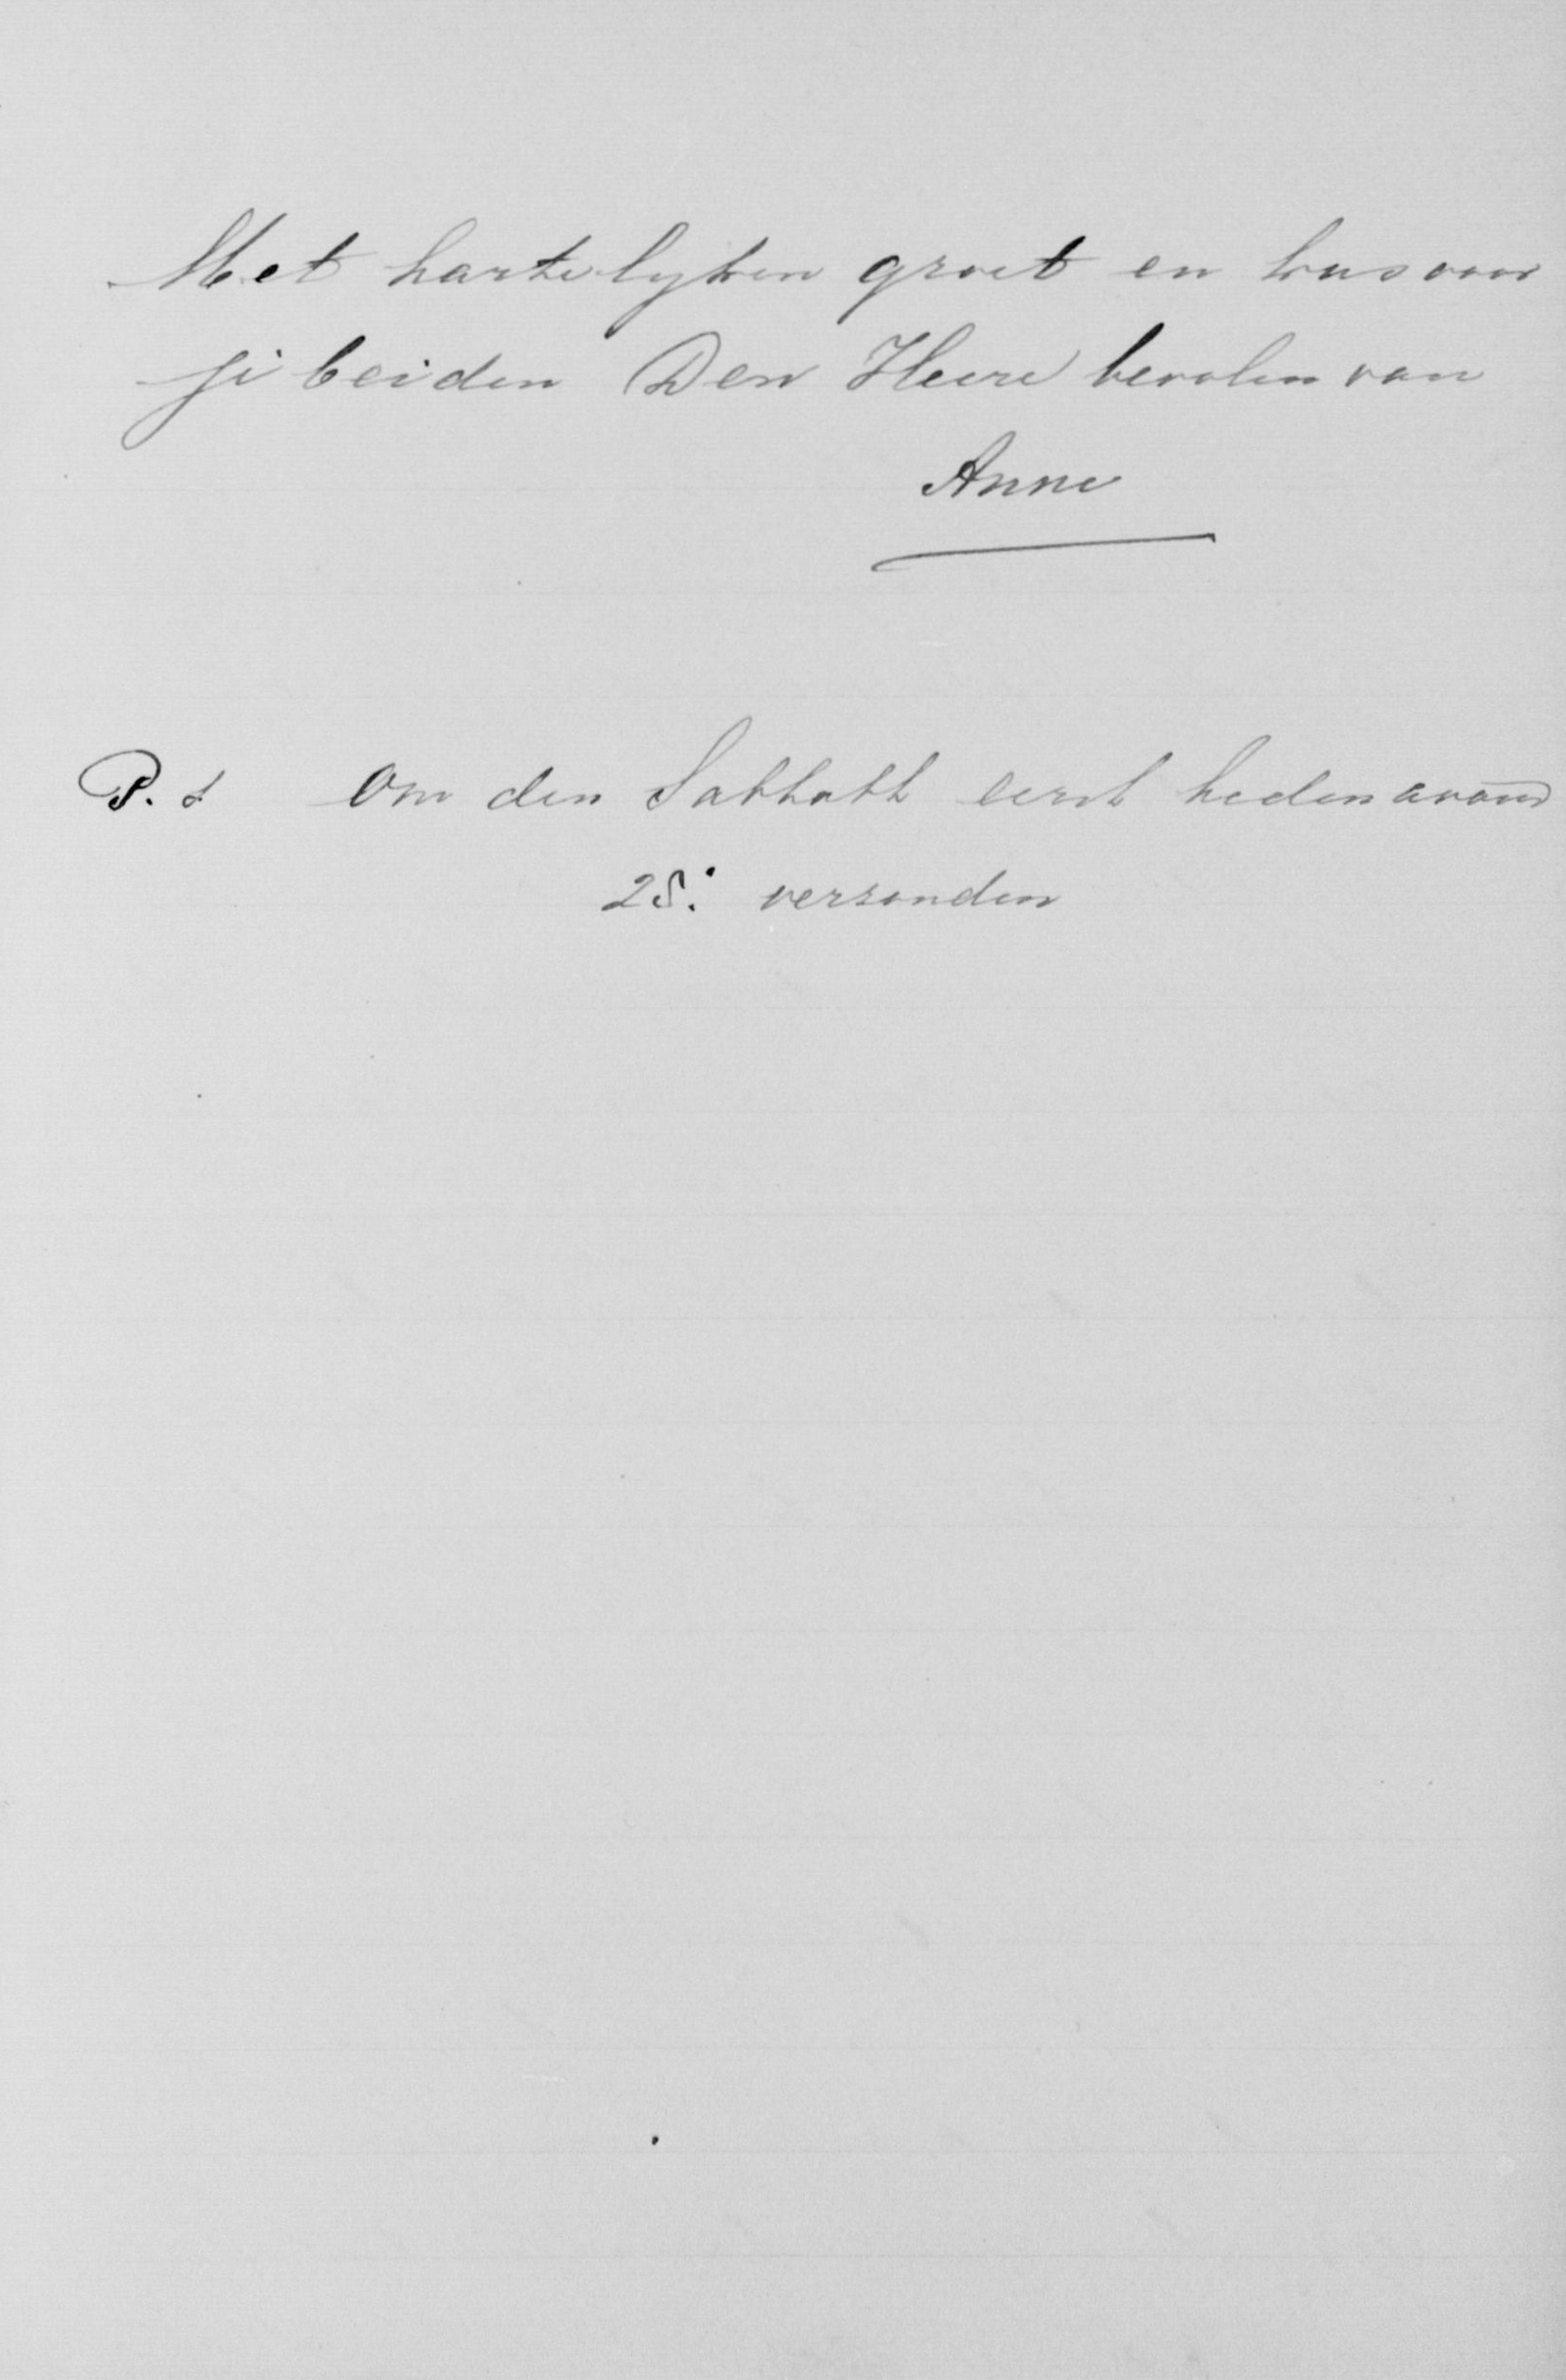 Met hartelyken groet en kus voor
je beiden Den Heere bevolen van
Anne
P. s om den Sabbath eerst heden avond
28: verzonden